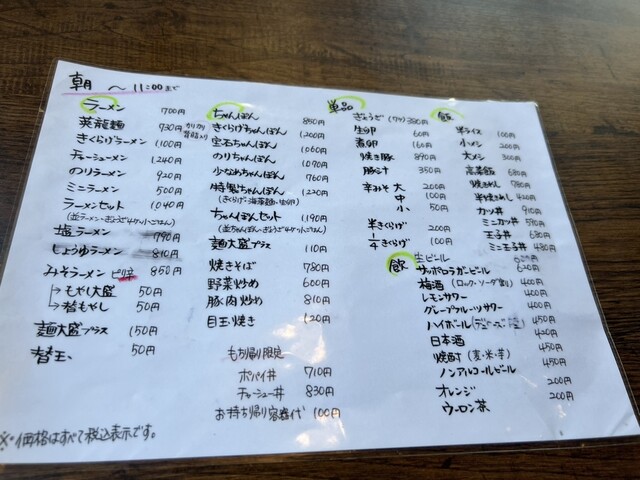 朝 ～ 11:00まで
ラーメン 700円
英龍麺 930円 カリカリ背脂入り
きくらげラーメン 1,100円
チャーシューメン 1,240円
のりラーメン 920円
ミニラーメン 500円
ラーメンセット 1,040円
(並ラーメン・ぎょうざ4ケ・小ごはん)
塩ラーメン 790円
しょうゆラーメン 810円
みそラーメン ピリ辛 850円
↳もやし大盛 50円
↳替もやし 50円
麺大盛プラス 150円
替玉、 50円
ちゃんぽん 850円
きくらげちゃんぽん 1,200円
宝石ちゃんぽん 1,060円
のりちゃんぽん 1,070円
少なめちゃんぽん 760円
特製ちゃんぽん 1,220円
ちゃんぽんセット 1,190円
(並ちゃんぽん・ぎょうざ4ケ・小ごはん)
麺大盛プラス 110円
焼きそば 780円
野菜炒め 600円
豚肉炒め 810円
目玉焼き 120円
もち帰り限定
ポパイ丼 710円
チャーシュー丼 830円
お持ち帰り容器代 100円
単品
ぎょうざ (7ケ) 380円
生卵 60円
煮卵 160円
焼き豚 890円
豚汁 350円
辛みそ 大 200円
中 100円
小 50円
半きくらげ 200円
1/4きくらげ 100円
半ライス 100円
小メシ 200円
大メシ 300円
高菜飯 680円
焼きめし 780円
半焼きめし 420円
カツ丼 910円
ミニカツ丼 570円
玉子丼 680円
ミニ玉子丼 430円
飲
生ビール
サッポロラガービール 620円
梅酒 (ロック・ソーダ割) 400円
レモンサワー 400円
グレープフルーツサワー 400円
ハイボール 450円
日本酒 420円
焼酎 (麦・米・芋) 450円
ノンアルコールビール 450円
オレンジ 200円
ウーロン茶 200円
※価格はすべて税込表示です。